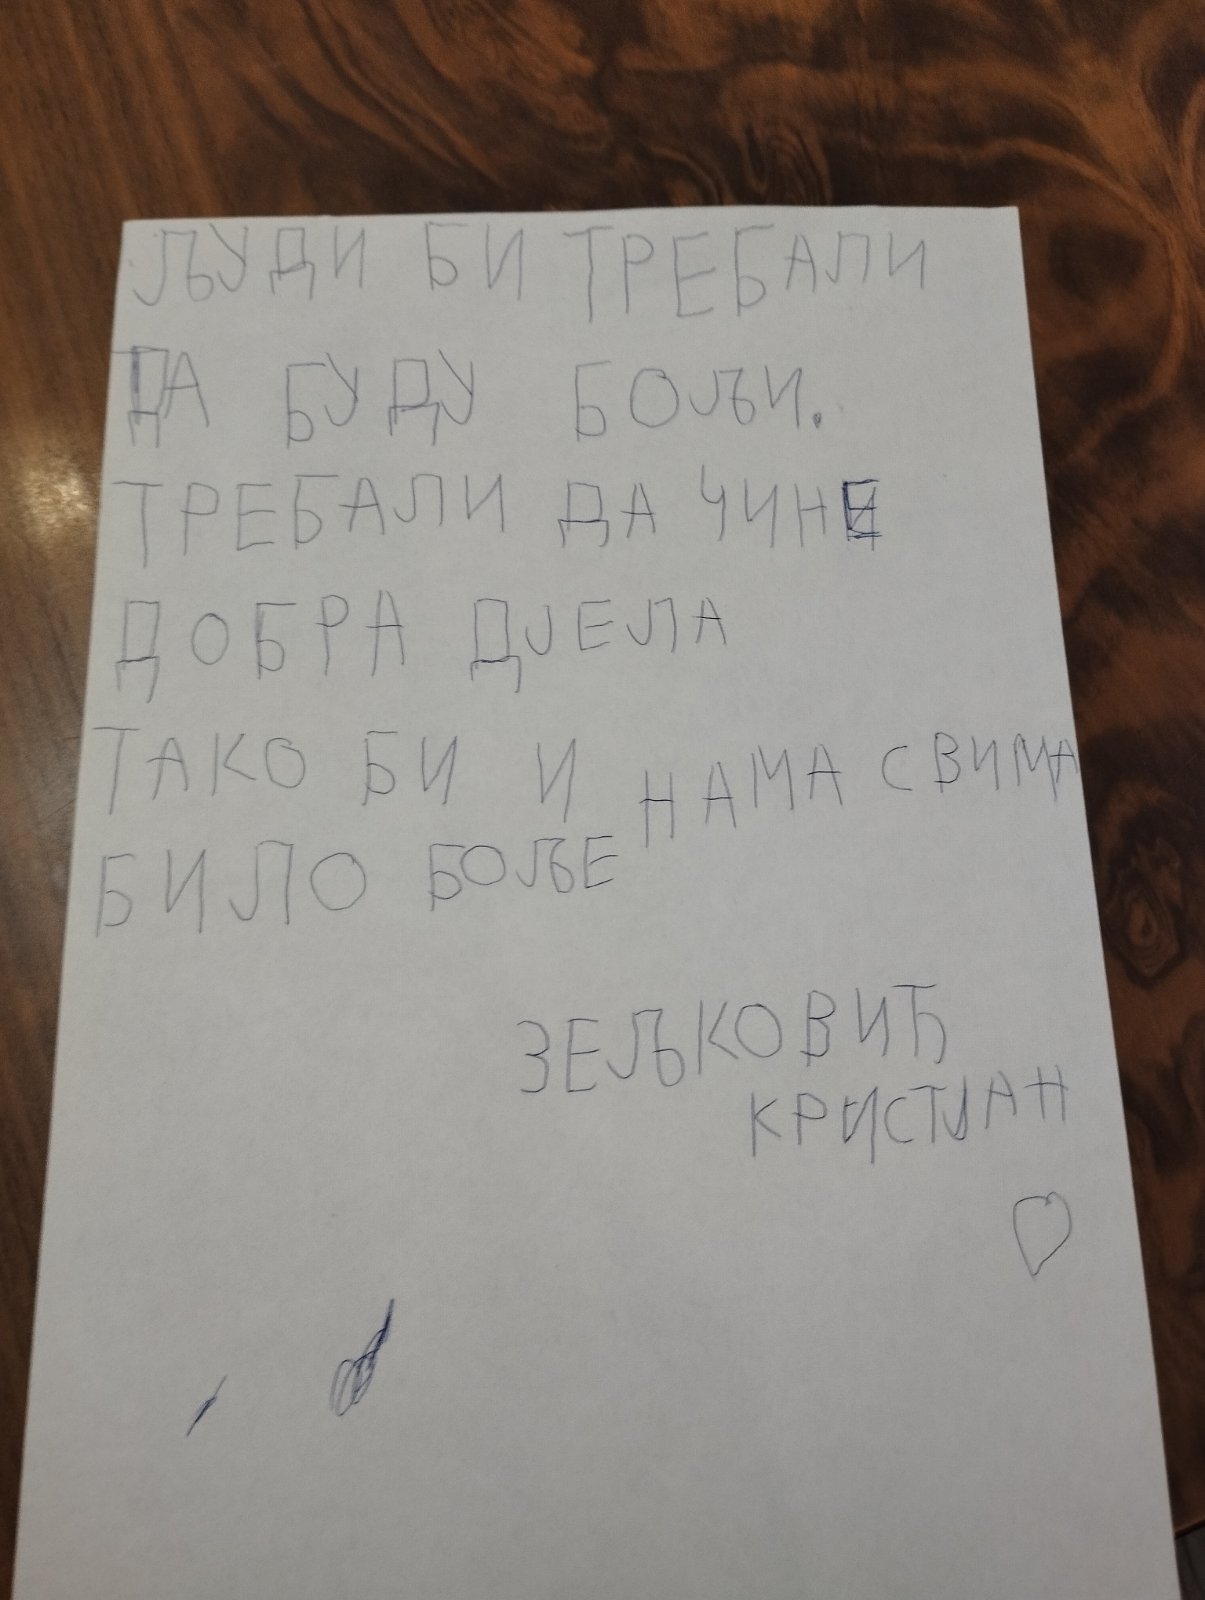 ЉУДИ БИ ТРЕБАЛИ
ДА БУДУ БОЉИ.
ТРЕБАЛИ ДА ЧИНЕ
ДОБРА ДЈЕЛА
ТАКО БИ И НАМА СВИМА
БИЛО БОЉЕ
ЗЕЉКОВИЋ
КРИСТЈАН